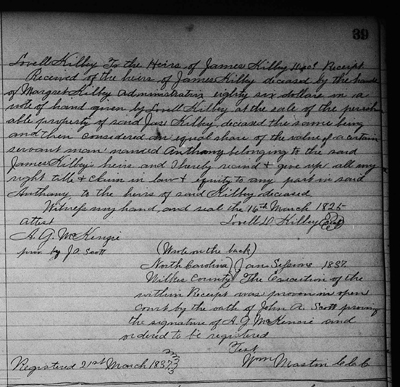 39
Lovell Kilby To the Heirs of James Kilby Decd. Receipt
Received of the heirs of James Kilby deceased by the hands
of Margaret Kilby Administratrix eighty six dollars in a
note of hand given by Lovell Kilby at the sale of the perish-
able property of said Jas Kilby, deceased the same being
and then considered an equal share of the value of a certain
servant man named Anthony belonging to the said
James Kilby's heirs and I hereby resind & give up all my
right title & claim in law & equity to any part in said
Anthony to the heirs of said Kilby deceased
Witness my hand, and seal the 16th March 1825
attest Lovell D. Kilby (Seal)
A. G. McKenzie
prov by J. A. Scott (Wrote on the back)
North Carolina) Jan Sessions 1837
Wilkes County) The Execution of the
within Receipt was proven in open
Court by the oath of John A. Scott proving
the signature of A. G. McKenzie and
ordered to be registered
Test
Registered 21st March 1837 Wm Mastin C.C.C.